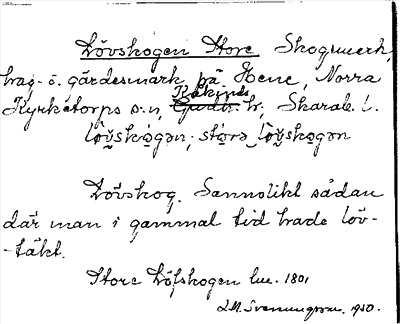 Lövskogen Store Skogsmark,
hag- o. gärdesmark på Hene, Norra
Kyrketorps s:n, Kåkinds hr, Skarab. l.
lö̀vskó̀gən, stórə lö̀vskó̀gən
Lövskog. Sannolikt sådan
där man i gammal tid hade löv-
-täkt.
Store Löfskogen lm. 1801
1930.